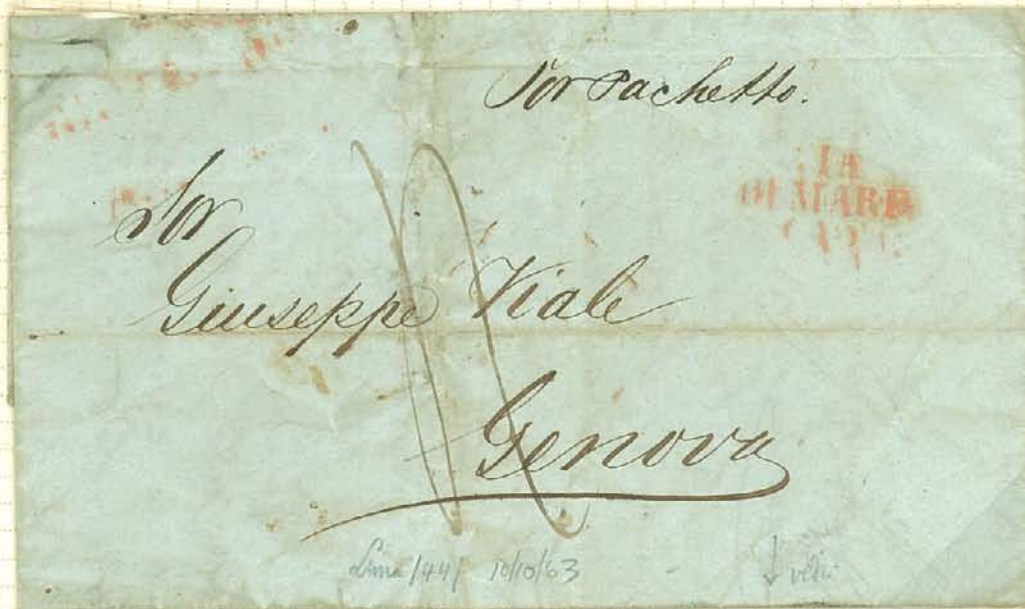 Por Pachetto.
IA
DI MARE
Sor
Giuseppe Viale
Genova
Lima /44/ 10/10/63